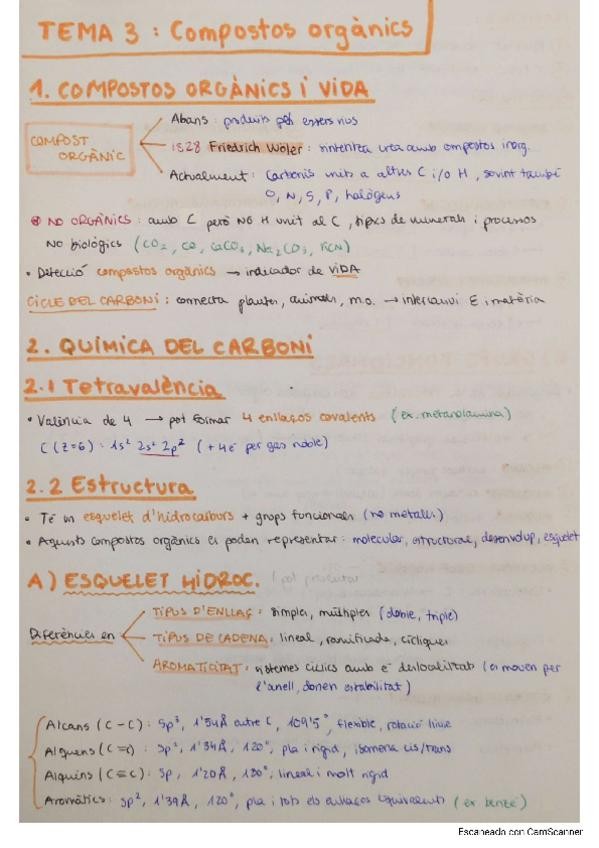 TEMA 3 : Compostos orgànics
1. COMPOSTOS ORGÀNICS i VIDA
Abans : produits pels essers vius
COMPOST ORGÀNIC
1828 Friedrich Wöler : sintentitza urea amb compostos inorg.
Actualment : Carbonis units a altres C i/o H, sovint també
O, N, S, P, halògens
NO ORGÀNICS : amb C però NO H unit al C, típics de minerals i processos
NO biològics (CO₂, CO, CaCO₃, Na₂CO₃, KCN)
• Detecció compostos orgànics → indicador de VIDA
CICLE DEL CARBONI : connecta plantes, animals, m.o. → intercanvi E i matèria
2. QUÍMICA DEL CARBONI
2.1 Tetravalència
• València de 4 → pot formar 4 enllaços covalents (ex. metanolamina)
C (Z=6) : 1s² 2s² 2p² (+4e⁻ per gas noble)
2.2 Estructura
• Té un esquelet d'hidrocarburs + grups funcionals (no metalls)
• Aquests compostos orgànics es poden representar : molecular, estructural, desenvolup, esquelet
A) ESQUELET HIDROC.
TIPUS D'ENLLAÇ : simples, múltiples (doble, triple)
Diferències en
TIPUS DE CADENA : lineal, ramificada, cícliques
AROMATICITAT : sistemes cíclics amb e⁻ deslocalitzats (es moven per
l'anell, donen estabilitat)
Alcans (C - C) : sp³, 1'54Å entre C, 109'5°, flexible, rotació lliure
Alquens (C = C) : sp², 1'34Å, 120°, pla i rígid, isomeria cis/trans
Alquins (C ≡ C) : sp, 1'20Å, 180°, lineal i molt rígid
Aromàtics : sp², 1'39Å, 120°, pla i tots els enllaços equivalents (ex benzè)
Escaneado con CamScanner